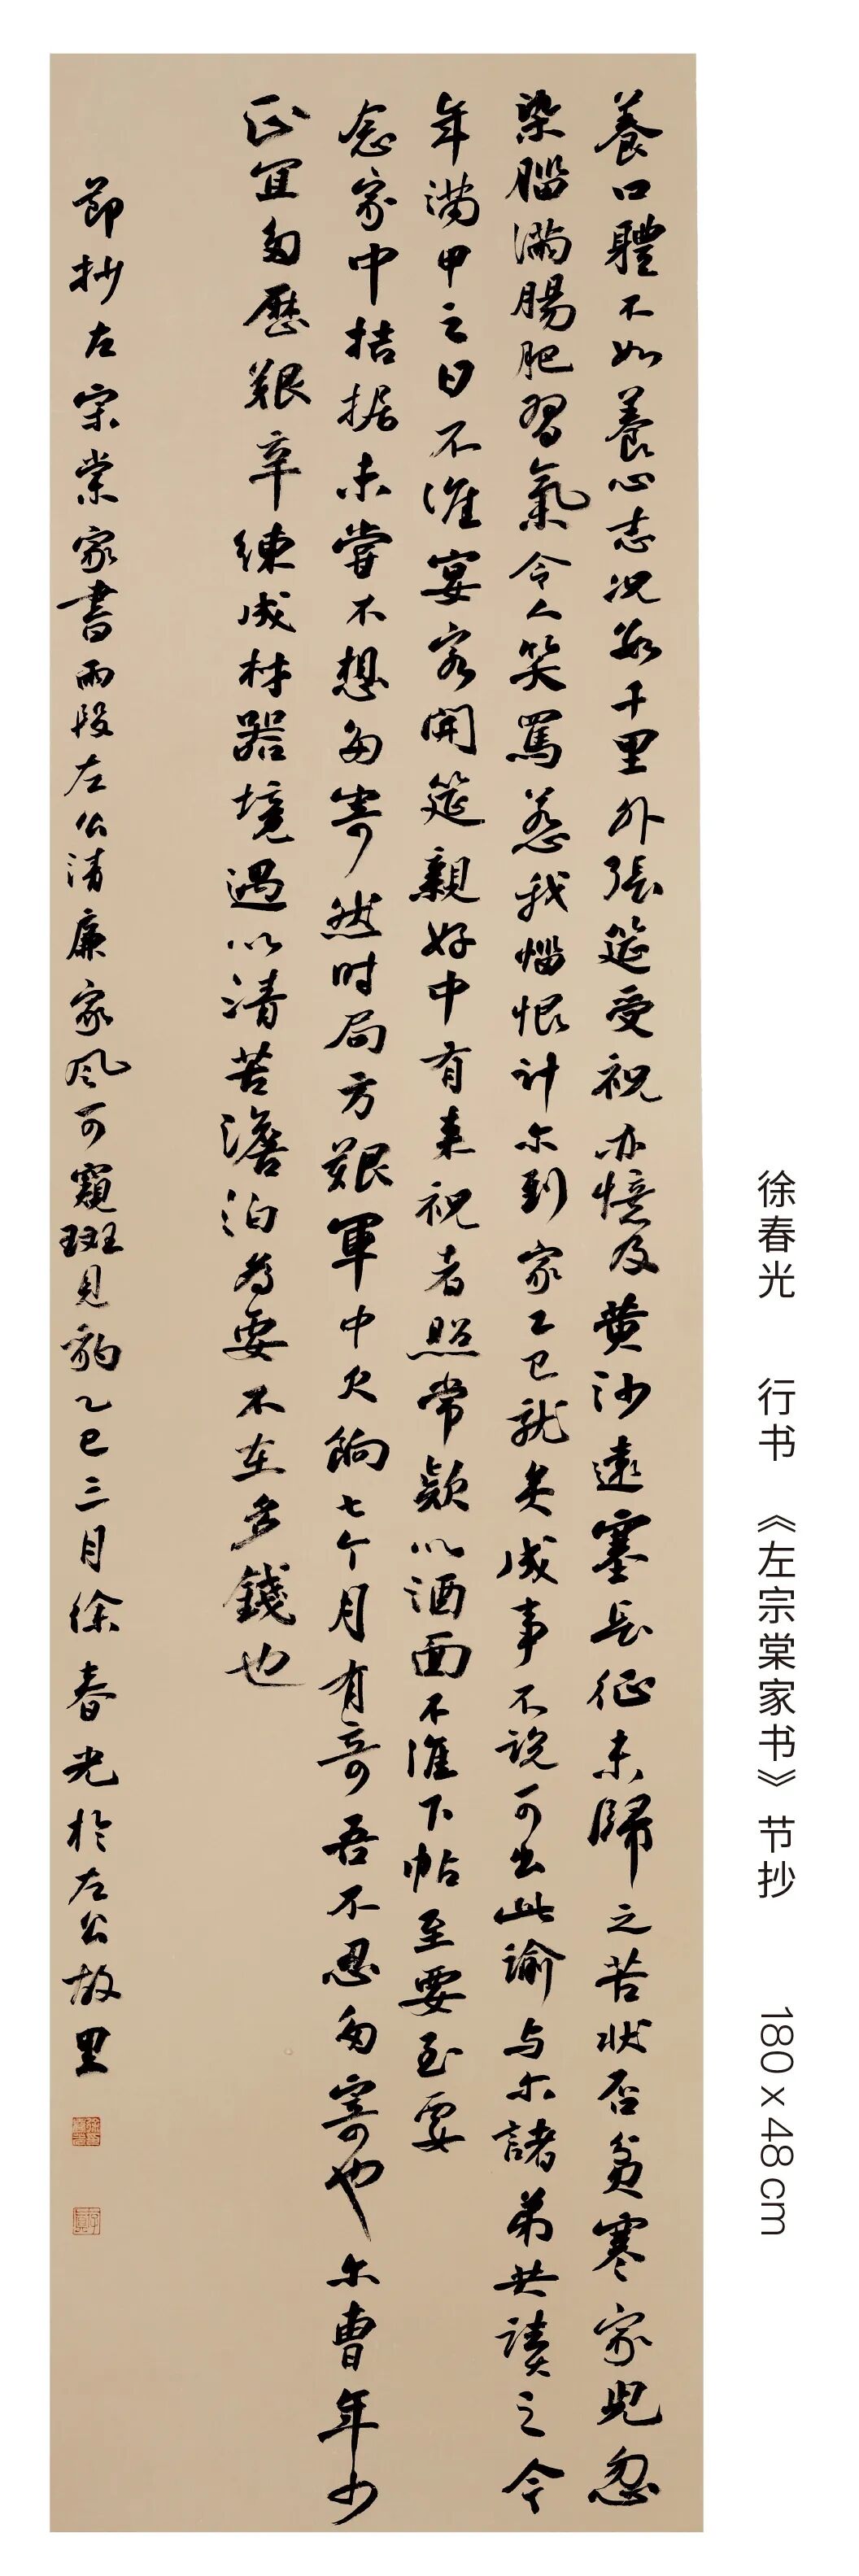 養口體不如養心志况數千里外張筵受祝亦憶及黄沙遠塞長征未歸之苦狀否貧寒家兒忽
染腦滿腸肥習氣令人笑罵惹我惱恨計尔到家工已就矣成事不説可出此諭与尔諸弟共讀之今
年滿甲之日不准宴客開筵親好中有来祝者照常款以酒面不准下帖至要至要
念家中拮据未嘗不想多寄然时局方艱軍中欠餉七个月有奇吾不忍多寄也尔曹年少
正宜多歷艱辛練成材器境遇以清苦澹泊為要不在多錢也
節抄左宗棠家書兩段左公清廉家风可窺斑見豹乙巳三月徐春光於左公故里
徐春光 行书 《左宗棠家书》节抄 180 x 48 cm